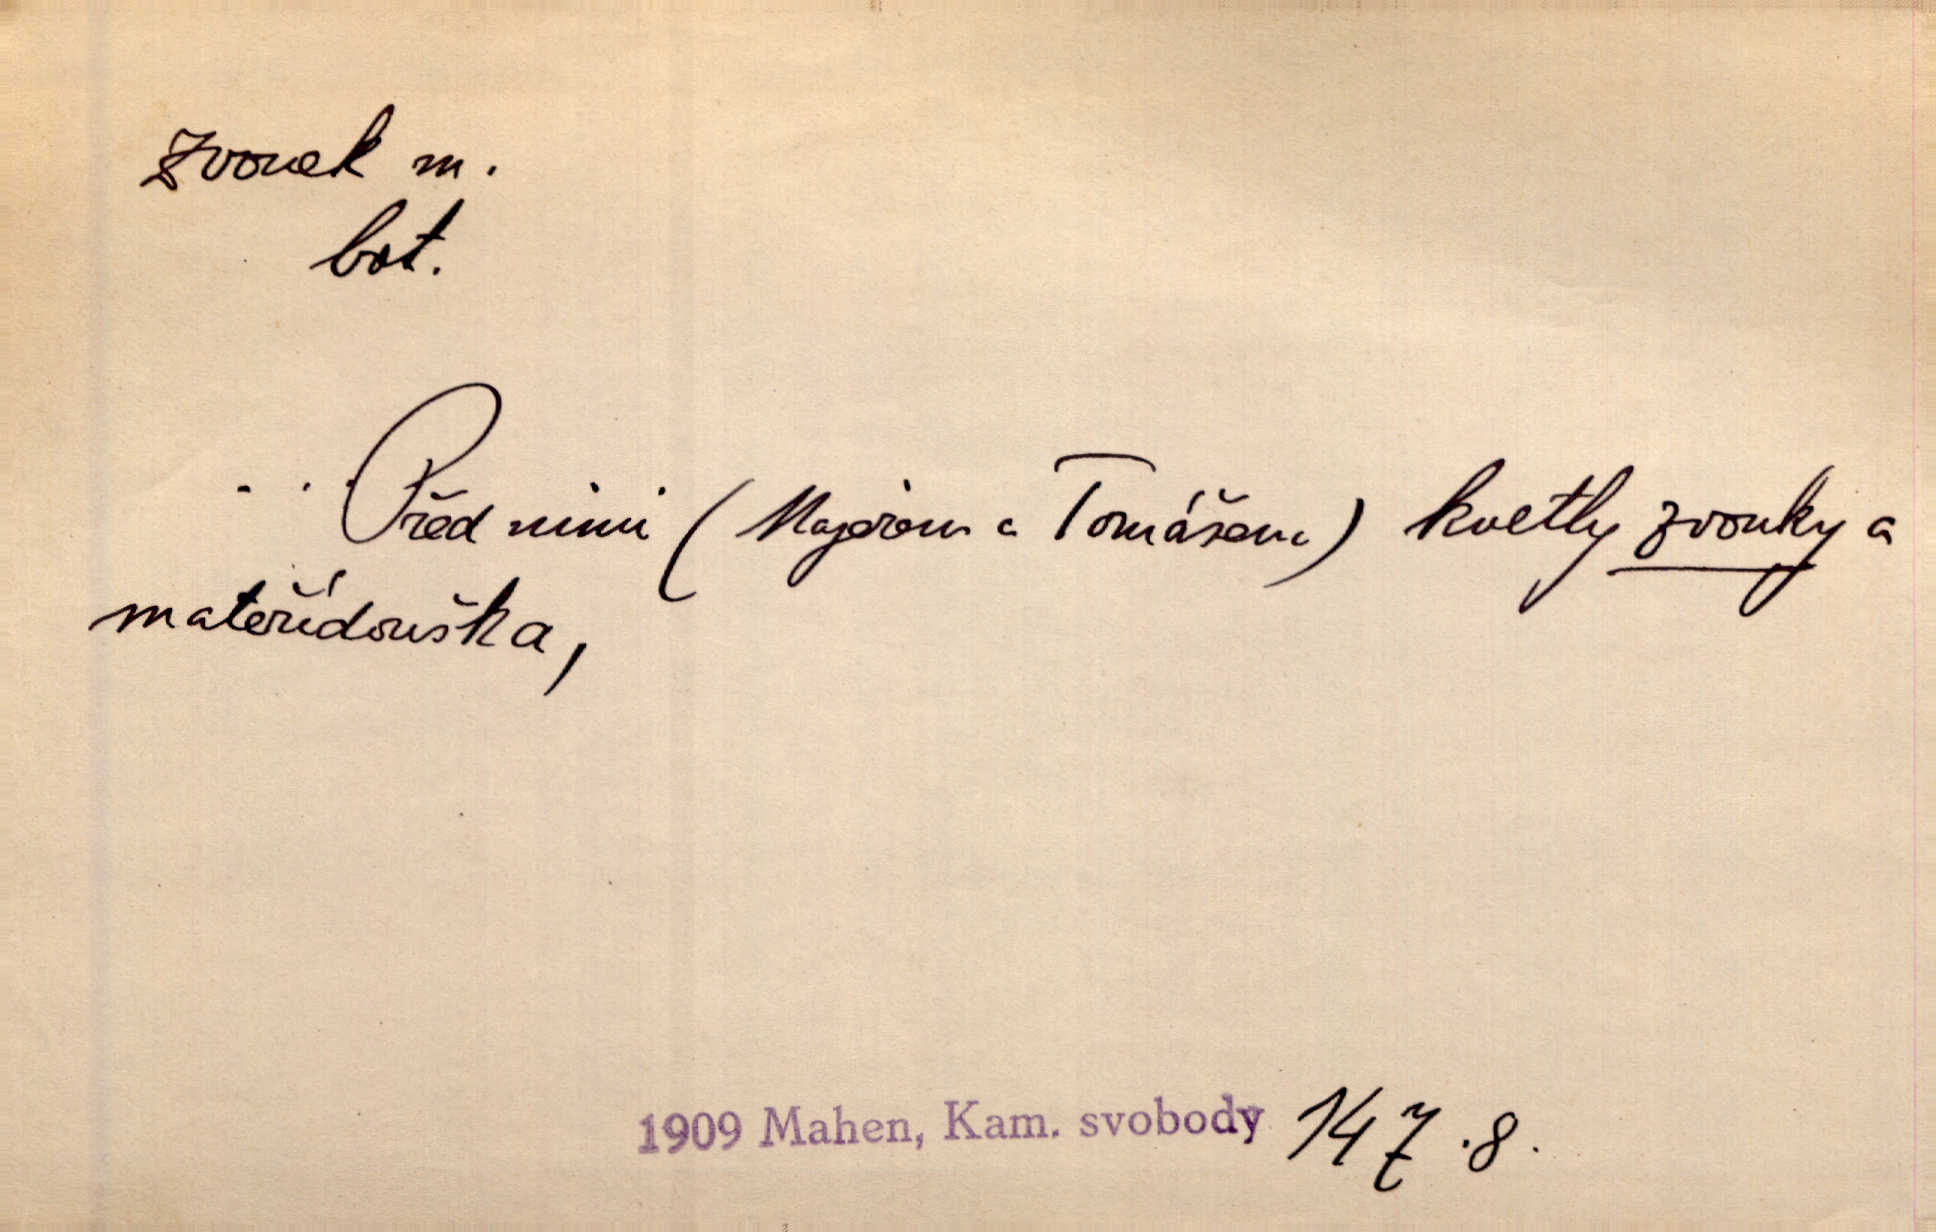 zvonek m.
bot.
... Před nimi (Majerem a Tomášem) kvetly zvonky a
mateřídouška,
1909 Mahen, Kam. svobody 147.8.